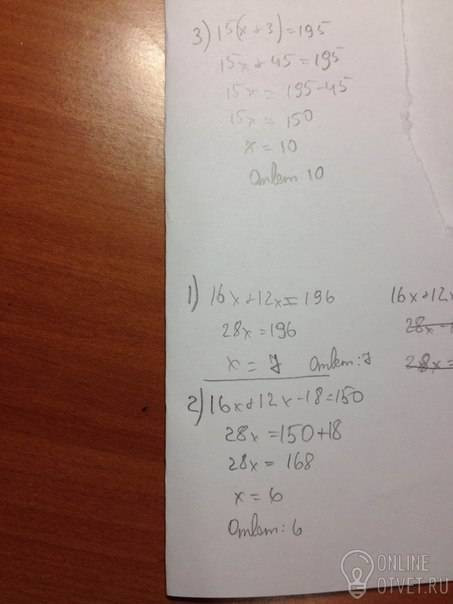 3) 15(x+3)=195
15x+45=195
15x=195-45
15x=150
x=10
Ответ 10
1) 16x+12x=196
28x=196
x=7 Ответ: 7
16x+12x
28x
28x=
2) 16x+12x-18=150
28x=150+18
28x=168
x=6
Ответ: 6
ONLINE
OTVET.RU